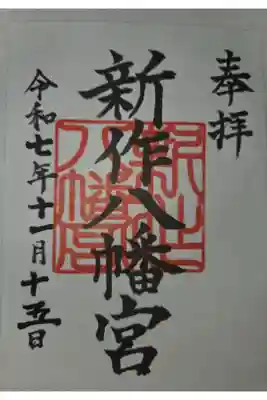 奉拝
新作八幡宮
令和七年十一月十五日